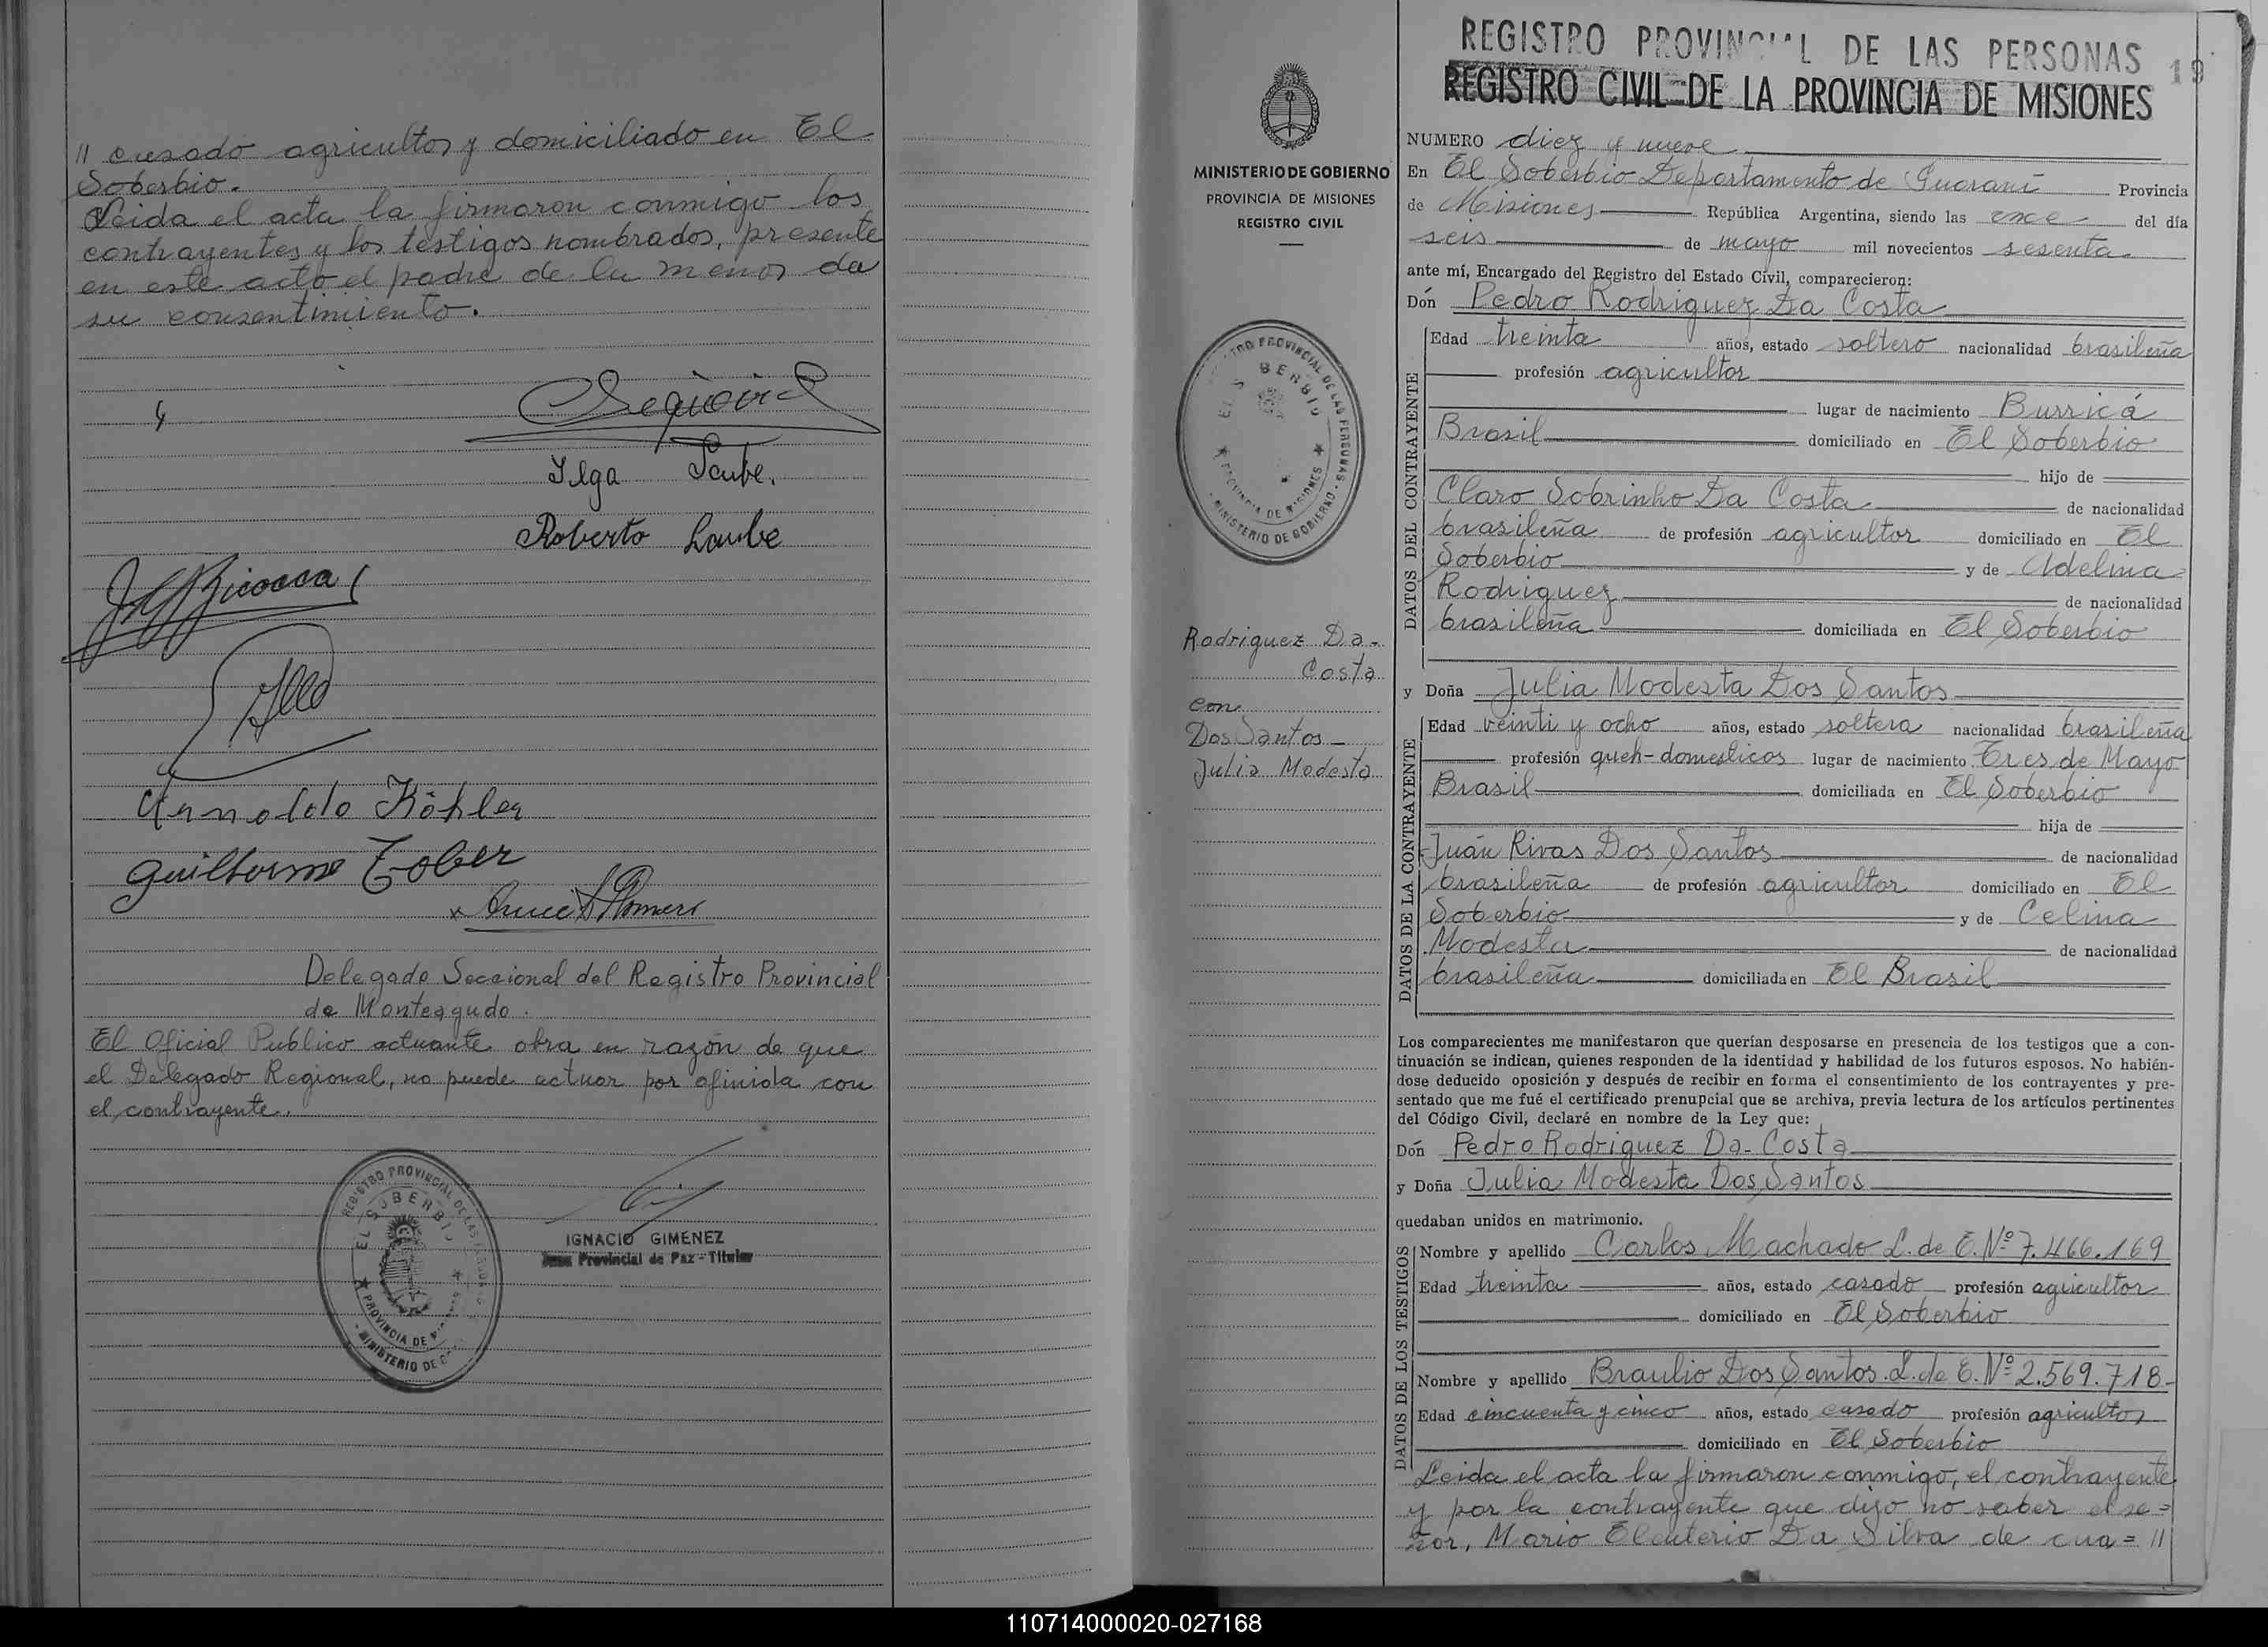 // cusado agricultor y domiciliado en El
Soberbio.
Leida el acta la firmaron conmigo los
contrayentes y los testigos nombrados, presente
en este acto el padre de la menor da
su consentimiento.
Ilga Laube.
Roberto Laube
Arnoldo Köhler
Guilherme Tober
Delegado Seccional del Registro Provincial
de Monteagudo.
El Oficial Publico actuante obra en razón de que
el Delegado Regional, no puede actuar por afinida con
el contrayente.
REGISTRO PROVINCIAL DE LAS PERSONAS
EL SOBERBIO
PROVINCIA DE MISIONES
MINISTERIO DE GOBIERNO
IGNACIO GIMENEZ
Juez Provincial de Paz - Titular
MINISTERIO DE GOBIERNO
PROVINCIA DE MISIONES
REGISTRO CIVIL
REGISTRO PROVINCIAL DE LAS PERSONAS
EL SOBERBIO
PROVINCIA DE MISIONES
MINISTERIO DE GOBIERNO
Rodriguez Da-
Costa
con
Dos Santos-
Julia Modesta
REGISTRO PROVINCIAL DE LAS PERSONAS
19
REGISTRO CIVIL DE LA PROVINCIA DE MISIONES
NUMERO diez y nueve
En El Soberbio Departamento de Guaraní Provincia
de Misiones República Argentina, siendo las once del día
seis de mayo mil novecientos sesenta
ante mí, Encargado del Registro del Estado Civil, comparecieron:
Dón Pedro Rodriguez Da Costa
DATOS DEL CONTRAYENTE
Edad treinta años, estado soltero nacionalidad brasileña
profesión agricultor
lugar de nacimiento Burricá
Brasil domiciliado en El Soberbio
hijo de
Claro Sobrinho Da Costa de nacionalidad
brasileña de profesión agricultor domiciliado en El
Soberbio y de Adelina
Rodriguez de nacionalidad
brasileña domiciliada en El Soberbio
y Doña Julia Modesta Dos Santos
DATOS DE LA CONTRAYENTE
Edad veinti y ocho años, estado soltera nacionalidad brasileña
profesión queh-domesticos lugar de nacimiento Tres de Mayo
Brasil domiciliada en El Soberbio
hija de
Juán Rivas Dos Santos de nacionalidad
brasileña de profesión agricultor domiciliado en El
Soberbio y de Celina
Modesta de nacionalidad
brasileña domiciliada en El Brasil
Los comparecientes me manifestaron que querían desposarse en presencia de los testigos que a con-
tinuación se indican, quienes responden de la identidad y habilidad de los futuros esposos. No habién-
dose deducido oposición y después de recibir en forma el consentimiento de los contrayentes y pre-
sentado que me fué el certificado prenupcial que se archiva, previa lectura de los artículos pertinentes
del Código Civil, declaré en nombre de la Ley que:
Dón Pedro Rodriguez Da-Costa
y Doña Julia Modesta Dos Santos
quedaban unidos en matrimonio.
DATOS DE LOS TESTIGOS
Nombre y apellido Carlos Machado L. de E. Nº 7.466.169
Edad treinta años, estado casado profesión agricultor
domiciliado en El Soberbio
Nombre y apellido Braulio Dos Santos. L. de E. Nº 2.569.718-
Edad cincuenta y cinco años, estado casado profesión agricultor
domiciliado en El Soberbio
Leida el acta la firmaron conmigo, el contrayente
y por la contrayente que dijo no saber el se=
ñor, Mario Eleuterio Da Silva de cua= //
110714000020-027168